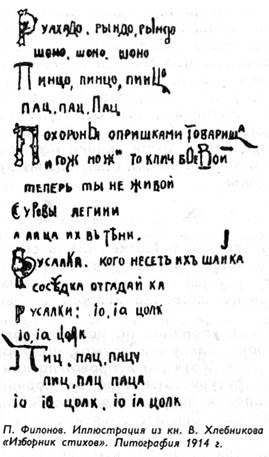 Руахадо, рындо, рындо
шоно, шоно, шоно
Пинцо, пинцо, пинцо
пац, пац, пац
Похороны опришками товарища
„гож нож" то клич боевой
теперь ты не живой
суровы легини
а лица их въ тѣни.
Русалка. кого несетъ ихъ шайка
сосѣдка отгадай ка
русалки: іо, іа цолк
іо, іа цолк
Пиц, пац, пацу
пиц, пац паца
іо іа цолк, іо іа цолк
П. Филонов. Иллюстрация из кн. В. Хлебникова
«Изборник стихов». Литография 1914 г.